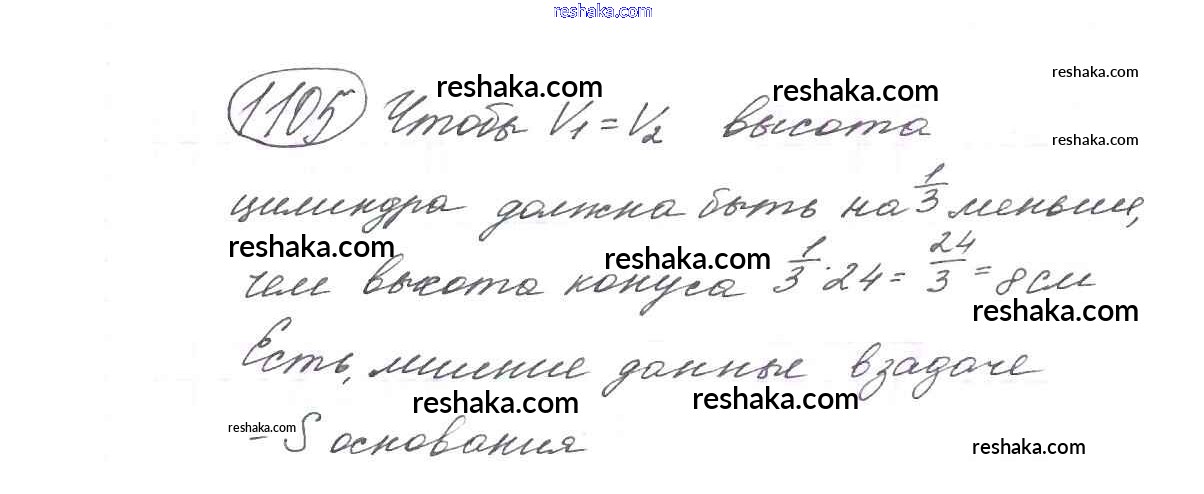 reshaka.com
1105 Чтобы V₁ = V₂ высота
reshaka.com reshaka.com reshaka.com
reshaka.com
цилиндра должна быть на 1/3 меньше,
reshaka.com reshaka.com
чем высота конуса 1/3 · 24 = 24/3 = 8 см
reshaka.com
Есть, лишние данные в задаче
reshaka.com reshaka.com
reshaka.com
– S основания
reshaka.com